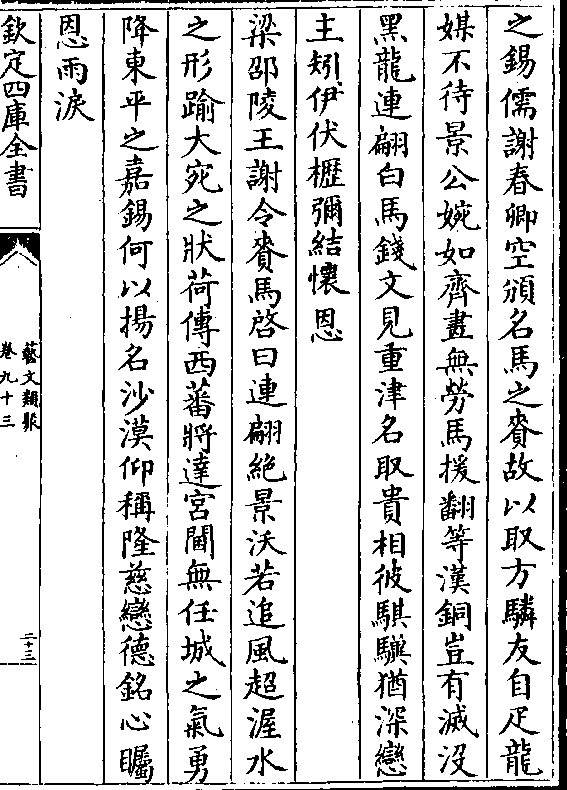 之錫儒謝春卿空頒名馬之賚故以取方驎友自疋龍
媒不待景公婉如齊畫無勞馬援翻等漢銅豈有滅没
黑龍連翩白馬錢文見重津名取貴相彼騏驥猶深戀
主矧伊伏櫪彌結懷恩
梁邵陵王謝令賚馬啓曰連翩絶景沃若追風超渥水
之形踰大宛之狀荷傳西蕃將達宮閫無任城之氣勇
降東平之嘉錫何以揚名沙漠仰稱隆慈戀德銘心矚
恩雨淚
欽定四庫全書
藝文類聚
卷九十三
二十三